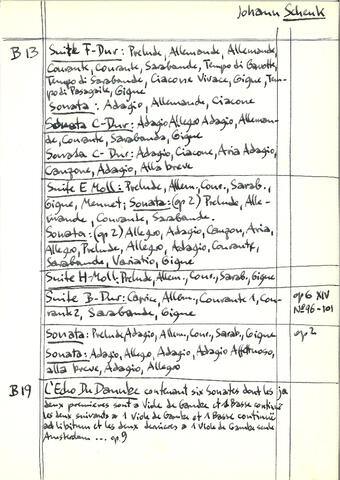 Johann Schenk
B 13 Suite F-Dur: Prelude, Allemande, Allemande,
Courante, Courante, Sarabande, Tempo di Gavotta,
Tempo di Sarabande, Ciacone Vivace, Gigue, Tem-
po di Passagaile, Gigue
Sonata: Adagio, Allemande, Ciacone
Sonata C-Dur: Adagio Allegro Adagio, Alleman-
de, Courante, Sarabanda, Gigue
Sonata C-Dur: Adagio, Ciacone, Aria Adagio,
Canzone, Adagio, Alla breve
Suite E Moll: Prelude, Allem., Cour., Sarab.,
Gigue, Menuet; Sonata: (op 2) Prelude, Alle-
mande, Courante, Sarabande.
Sonata: (op 2) Allegro, Adagio, Canzon, Aria,
Allegro, Prelude, Allegro, Adagio, Courante,
Sarabande, Variatio, Gigue
Suite H-Moll: Prelude, Allem., Cour., Sarab., Gigue
Suite B-Dur: Caprice, Allem., Courante 1, Cou- op 6 XIV
rante 2, Sarabande, Gigue Nº 96-101
Sonata: Prelude Adagio, Allem., Cour., Sarab., Gigue op. 2
Sonata: Adagio, Allegro, Adagio, Adagio Affettuoso,
alla breve, Adagio, Allegro
B 19 L'Echo Du Danube contenant six Sonates dont les
deux premieres sont a Viole de Gambe et 1 Basse continue
les deux suivants a 1 Viole de Gambe et 1 Basse continue
ad libitum et les deux dernieres a 1 Viole de Gambe seule
Amsterdam ... op. 9